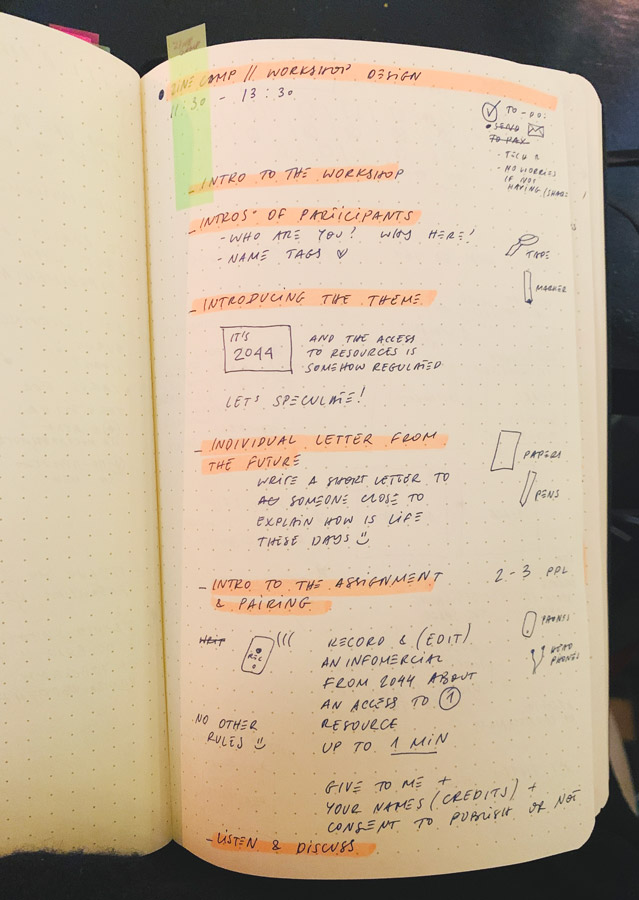 ZINE CAMP // WORKSHOP DESIGN
11:30 - 13:30
TO-DO:
SEND
TO PAY
- TECH &
- NO WORRIES
IF NOT
HAVING (SHARE
- INTRO TO THE WORKSHOP
- INTROS OF PARTICIPANTS
- WHO ARE YOU? WHY HERE?
- NAME TAGS
TAPE
MARKER
- INTRODUCING THE THEME
IT'S
2044
AND THE ACCESS
TO RESOURCES IS
SOMEHOW REGULATED
LET'S SPECULATE!
- INDIVIDUAL LETTER FROM
THE FUTURE
WRITE A SHORT LETTER TO
SOMEONE CLOSE TO
EXPLAIN HOW IS LIFE
THESE DAYS
PAPERS
PENS
- INTRO TO THE ASSIGNMENT
& PAIRING
2-3 PPL
REC
RECORD & (EDIT)
AN INFOMERCIAL
FROM 2044 ABOUT
AN ACCESS TO 1
RESOURCE
UP TO 1 MIN
PHONES
HEAD
PHONES
NO OTHER
RULES
GIVE TO ME +
YOUR NAMES (CREDITS) +
CONSENT TO PUBLISH OR NOT
- LISTEN & DISCUSS